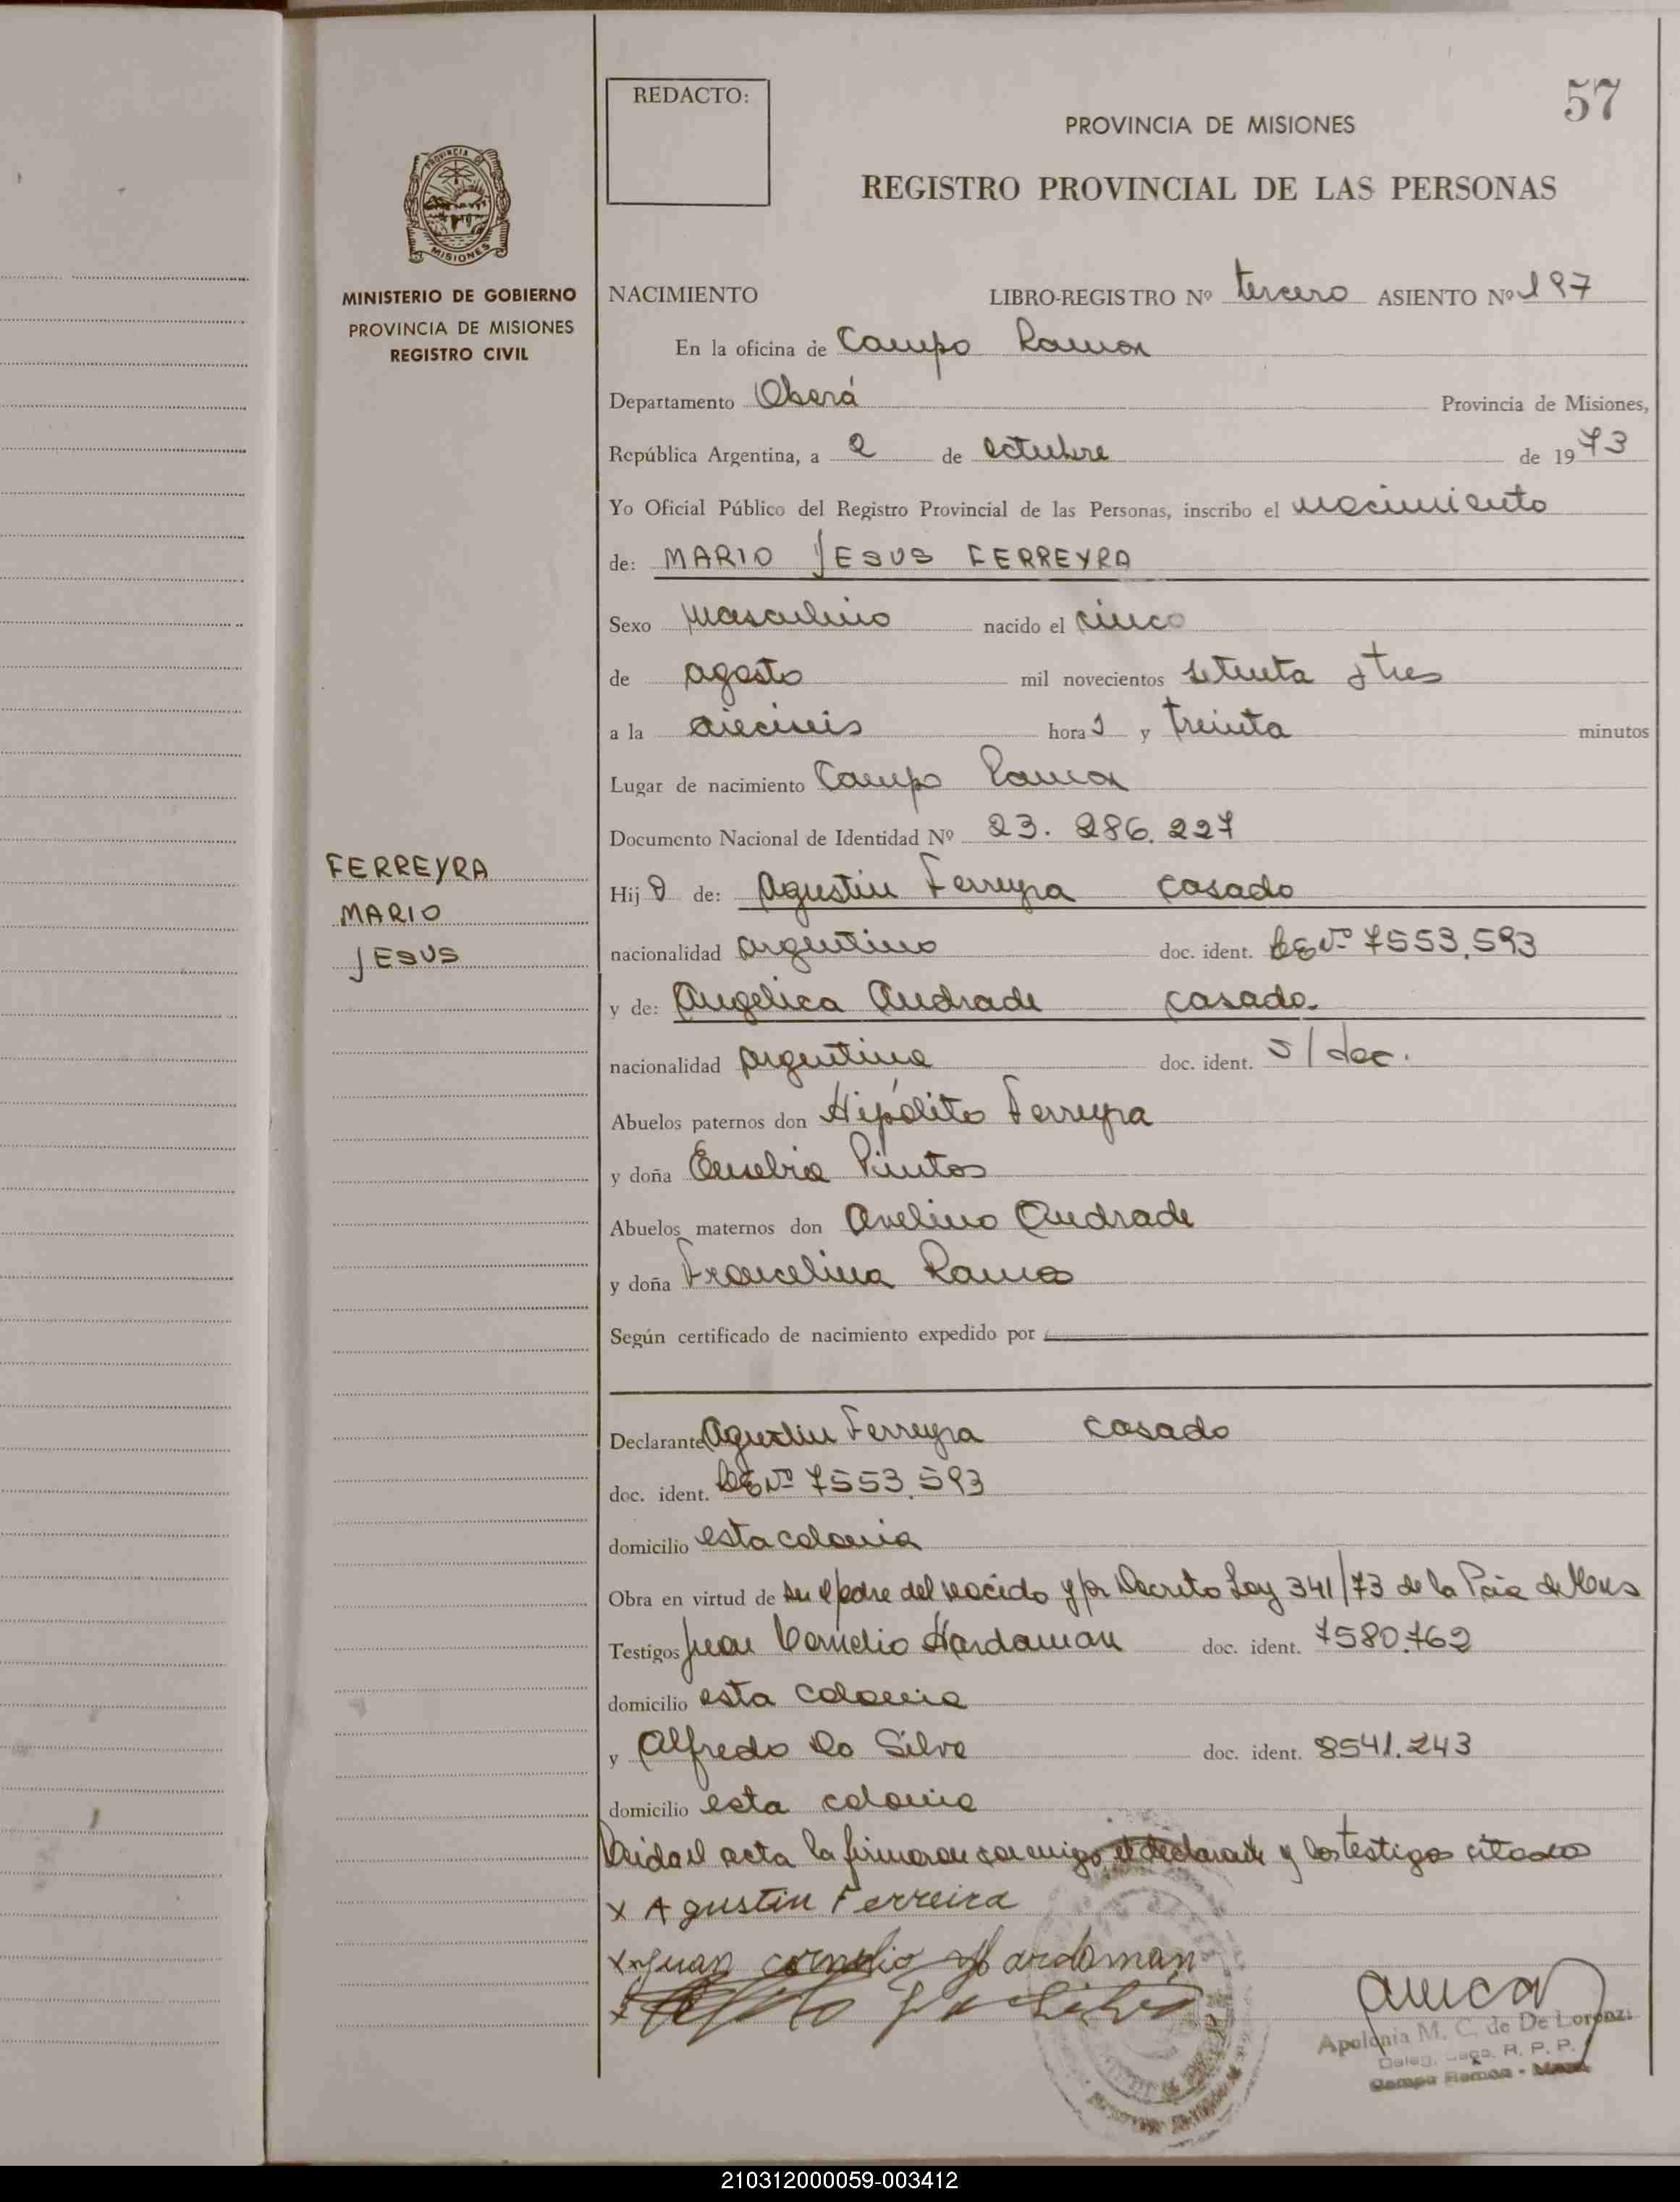 REDACTO:
57
PROVINCIA DE MISIONES
REGISTRO PROVINCIAL DE LAS PERSONAS
PROVINCIA DE
MISIONES
MINISTERIO DE GOBIERNO
PROVINCIA DE MISIONES
REGISTRO CIVIL
NACIMIENTO LIBRO-REGISTRO Nº tercero ASIENTO Nº 197
En la oficina de Campo Ramon
Departamento Oberá Provincia de Misiones,
República Argentina, a 2 de octubre de 1973
Yo Oficial Público del Registro Provincial de las Personas, inscribo el nacimiento
de: MARIO JESUS FERREYRA
Sexo masculino nacido el cinco
de agosto mil novecientos setenta y tres
a la dieciseis horas y treinta minutos
Lugar de nacimiento Campo Ramon
Documento Nacional de Identidad Nº 23.286.227
FERREYRA
MARIO
JESUS
Hijo de: Agustin Ferreyra casado
nacionalidad argentino doc. ident. LE Nº 7553.593
y de: Angelica Andrade casada.
nacionalidad argentina doc. ident. s/doc.
Abuelos paternos don Hipólito Ferreyra
y doña Eusebia Pintos
Abuelos maternos don Avelino Andrade
y doña Francelina Ramos
Según certificado de nacimiento expedido por
Declarante Agustin Ferreyra casado
doc. ident. LE Nº 7553.593
domicilio esta colonia
Obra en virtud de ser el padre del nacido y por Decreto Ley 341/73 de la Pcia de Mnes
Testigos Juan Cornelio Hardaman doc. ident. 7580.762
domicilio esta colonia
y Alfredo Da Silva doc. ident. 8541.243
domicilio esta colonia
Leida el acta la firmaron conmigo el declarante y los testigos citados
x Agustin Ferreira
x Juan cornelio Hardaman
x Da Silva
Apolonia M. C. de De Lorenzi
Deleg. R. P. P.
Campo Ramon -
210312000059-003412